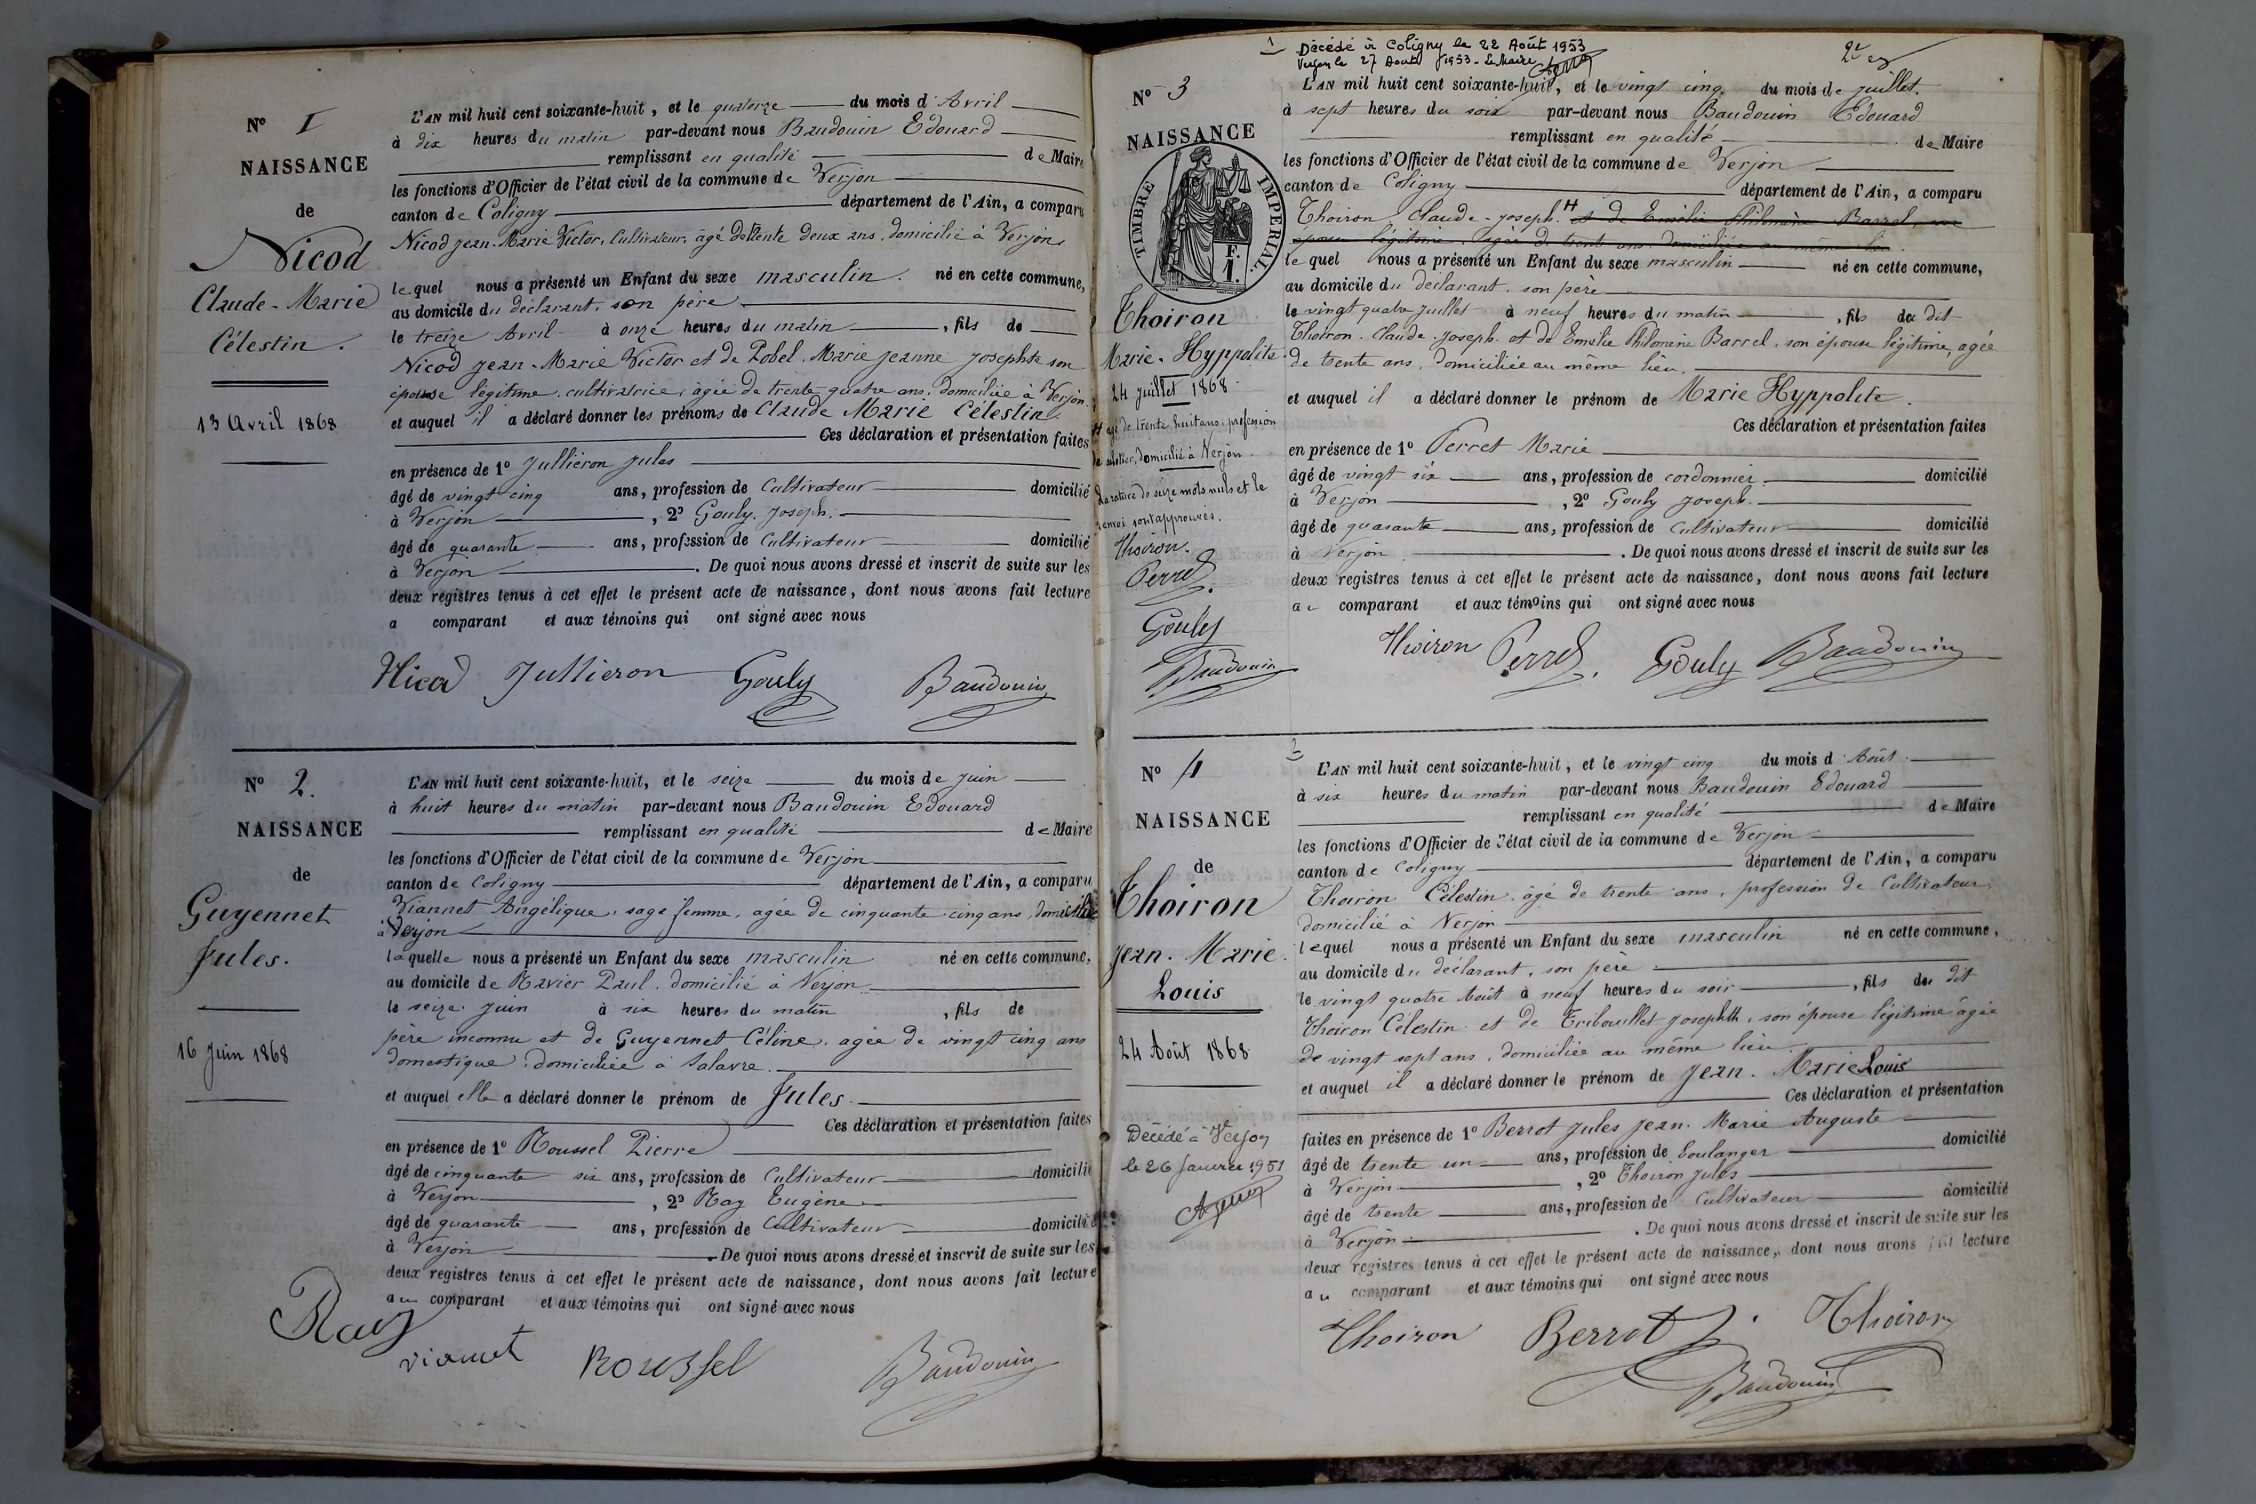 N° 1
NAISSANCE
de
Nicod
Claude-Marie
Célestin.
13 Avril 1868
L'AN mil huit cent soixante-huit, et le quatorze du mois d'Avril
à dix heures du matin par-devant nous Baudouin Edouard
remplissant en qualité de Maire
les fonctions d'Officier de l'état civil de la commune de Verjon
canton de Coligny département de l'Ain, a comparu
Nicod Jean-Marie Victor, Cultivateur, âgé de trente deux ans, domicilié à Verjon
lequel nous a présenté un Enfant du sexe masculin. né en cette commune,
au domicile du déclarant, son père
le treize Avril à onze heures du matin, fils de
Nicod Jean-Marie Victor et de Pobel Marie Jeanne Josephte son
épouse légitime, cultivatrice, âgée de trente-quatre ans, domiciliée à Verjon.
et auquel il a déclaré donner les prénoms de Claude Marie Célestin
Ces déclaration et présentation faites
en présence de 1° Jullieron Jules
âgé de vingt cinq ans, profession de Cultivateur domicilié
à Verjon, 2° Gouly Joseph.
âgé de quarante ans, profession de Cultivateur domicilié
à Verjon. De quoi nous avons dressé et inscrit de suite sur les
deux registres tenus à cet effet le présent acte de naissance, dont nous avons fait lecture
a comparant et aux témoins qui ont signé avec nous
Nicod Jullieron Gouly Baudouin
N° 2.
NAISSANCE
de
Guyennet
Jules.
16 Juin 1868
L'AN mil huit cent soixante-huit, et le seize du mois de Juin
à huit heures du matin par-devant nous Baudouin Edouard
remplissant en qualité de Maire
les fonctions d'Officier de l'état civil de la commune de Verjon
canton de Coligny département de l'Ain, a comparu
Viannet Angélique, sage femme, agée de cinquante-cinq ans, domiciliée
à Verjon
laquelle nous a présenté un Enfant du sexe masculin né en cette commune,
au domicile de Ravier Paul, domicilié à Verjon
le seize Juin à six heures du matin, fils de
père inconnu et de Guyennet Céline, agée de vingt cinq ans
domestique, domiciliée à Salavre.
et auquel elle a déclaré donner le prénom de Jules.
Ces déclaration et présentation faites
en présence de 1° Roussel Pierre
âgé de cinquante six ans, profession de Cultivateur domicilié
à Verjon, 2° Ray Eugène
âgé de quarante ans, profession de Cultivateur domicilié
à Verjon. De quoi nous avons dressé et inscrit de suite sur les
deux registres tenus à cet effet le présent acte de naissance, dont nous avons fait lecture
au comparant et aux témoins qui ont signé avec nous
Ray
Viannet Roussel Baudouin
1 Décédé à Coligny le 22 Août 1953
Verjon le 27 Août 1953 - Le Maire
N° 3
NAISSANCE
TIMBRE IMPERIAL.
F.
1.
Thoiron
Marie-Hyppolite.
24 Juillet 1868.
H agé de trente huit ans, profession
de sabotier, domicilié à Verjon.
La rature de seize mots nuls et le
renvoi sont approuvés.
Thoiron.
Perret.
Gouly
Baudouin
L'AN mil huit cent soixante-huit, et le vingt cinq du mois de Juillet.
à sept heures du soir par-devant nous Baudouin Edouard
remplissant en qualité de Maire
les fonctions d'Officier de l'état civil de la commune de Verjon
canton de Coligny département de l'Ain, a comparu
Thoiron Claude-Joseph. H et de Emélie Philomène Barrel, son
épouse légitime, âgée de trente ans, domiciliée au même lieu.
lequel nous a présenté un Enfant du sexe masculin né en cette commune,
au domicile du déclarant, son père
le vingt quatre Juillet à neuf heures du matin, fils du dit
Thoiron Claude-Joseph et de Emélie Philomène Barrel, son épouse légitime, agée
de trente ans, domiciliée au même lieu.
et auquel il a déclaré donner le prénom de Marie Hyppolite.
Ces déclaration et présentation faites
en présence de 1° Perret Marie
âgé de vingt six ans, profession de cordonnier domicilié
à Verjon, 2° Gouly Joseph.
âgé de quarante ans, profession de Cultivateur domicilié
à Verjon. De quoi nous avons dressé et inscrit de suite sur les
deux registres tenus à cet effet le présent acte de naissance, dont nous avons fait lecture
au comparant et aux témoins qui ont signé avec nous
Thoiron Perret. Gouly Baudouin
N° 4
NAISSANCE
de
Thoiron
Jean-Marie
Louis
24 Août 1868
Décédé à Verjon
le 26 Janvier 1951
L'AN mil huit cent soixante-huit, et le vingt cinq du mois d'Août
à six heures du matin par-devant nous Baudouin Edouard
remplissant en qualité de Maire
les fonctions d'Officier de l'état civil de la commune de Verjon
canton de Coligny département de l'Ain, a comparu
Thoiron Célestin, âgé de trente ans, profession de Cultivateur
domicilié à Verjon
lequel nous a présenté un Enfant du sexe masculin né en cette commune,
au domicile du déclarant, son père
le vingt quatre Août à neuf heures du soir, fils du dit
Thoiron Célestin et de Tribouillet Josephte, son épouse légitime âgée
de vingt sept ans, domiciliée au même lieu
et auquel il a déclaré donner le prénom de Jean-Marie Louis
Ces déclaration et présentation
faites en présence de 1° Berrot Jules Jean-Marie Auguste
âgé de trente un ans, profession de boulanger domicilié
à Verjon, 2° Thoiron Jules
âgé de trente ans, profession de Cultivateur domicilié
à Verjon. De quoi nous avons dressé et inscrit de suite sur les
deux registres tenus à cet effet le présent acte de naissance, dont nous avons fait lecture
au comparant et aux témoins qui ont signé avec nous
Thoiron Berrot J. Thoiron
Baudouin